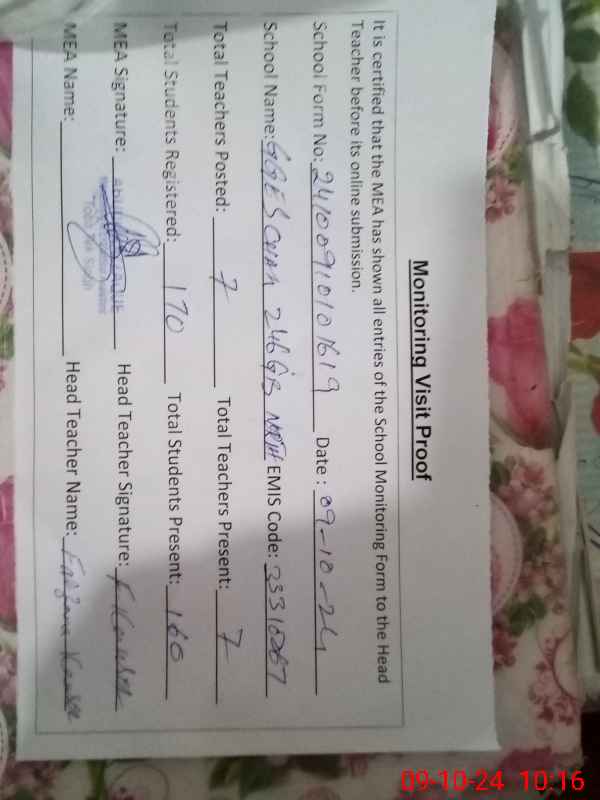 Monitoring Visit Proof
It is certified that the MEA has shown all entries of the School Monitoring Form to the Head
Teacher before its online submission.
School Form No: 24100910101619 Date : 09-10-24
School Name: GGES CHAK 246 GB NORTH EMIS Code:
Total Teachers Posted: 7 Total Teachers Present: 7
Total Students Registered: 170 Total Students Present: 160
MEA Signature: Head Teacher Signature: F. Kousar
MEA Name: Head Teacher Name: Farzana Kousar
09-10-24 10:16